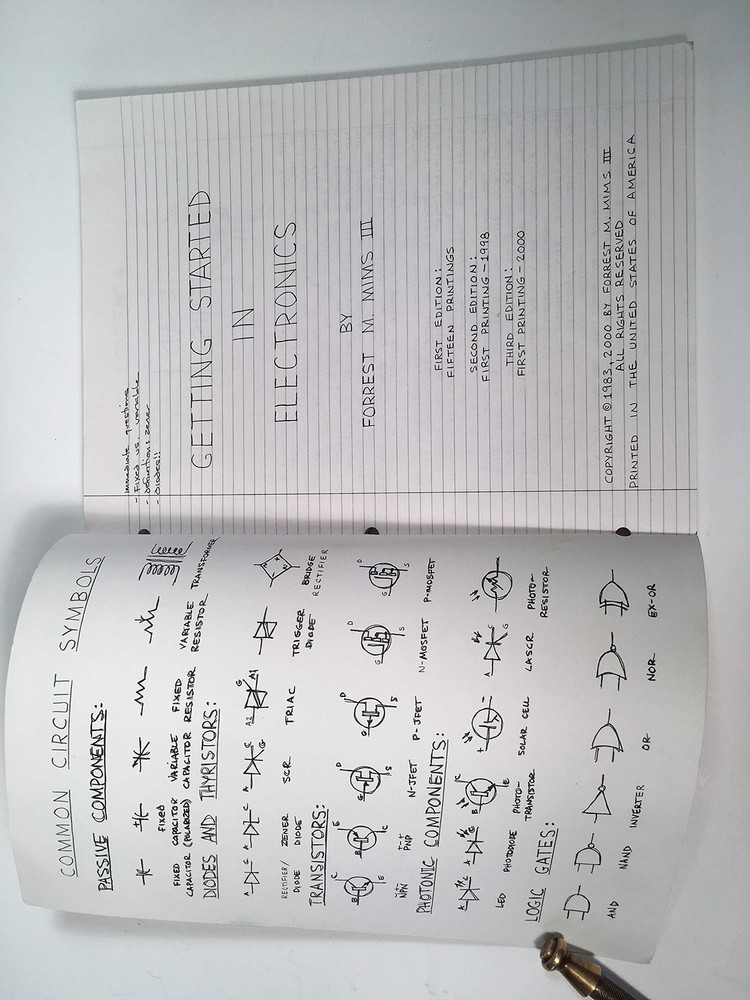 COMMON CIRCUIT SYMBOLS
PASSIVE COMPONENTS:
FIXED
CAPACITOR
FIXED
CAPACITOR
(POLARIZED)
VARIABLE
CAPACITOR
FIXED
RESISTOR
VARIABLE
RESISTOR
TRANSFORMER
DIODES AND THYRISTORS:
A C A C A C G A2 G A1
RECTIFIER/
DIODE
ZENER
DIODE
SCR
TRIAC
TRIGGER
DIODE
BRIDGE
RECTIFIER
TRANSISTORS:
B C E B E C G D S G D S G D S G D S
NPN
PNP
N-JFET
P-JFET
N-MOSFET
P-MOSFET
PHOTONIC COMPONENTS:
A C A C B C E + - A C G
LED
PHOTODIODE
PHOTO-
TRANSISTOR
SOLAR CELL
LASCR
PHOTO-
RESISTOR
LOGIC GATES:
AND NAND INVERTER OR NOR EX-OR
Immediate questions
- Fixed vs. variable
- definitions zener
- Diodes!!
GETTING STARTED
IN
ELECTRONICS
BY
FORREST M. MIMS III
FIRST EDITION:
FIFTEEN PRINTINGS
SECOND EDITION:
FIRST PRINTING - 1998
THIRD EDITION:
FIRST PRINTING - 2000
COPYRIGHT © 1983, 2000 BY FORREST M. MIMS III
ALL RIGHTS RESERVED
PRINTED IN THE UNITED STATES OF AMERICA